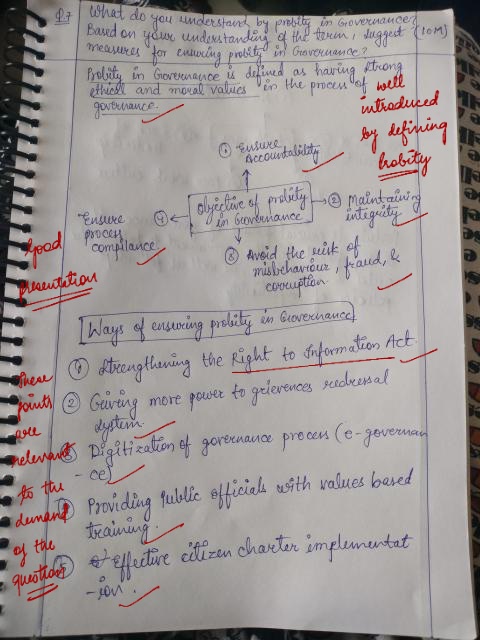 Q.7 What do you understand by probity in Governance?
Based on your understanding of the term, suggest (10M)
measures for ensuring probity in Governance?
Probity in Governance is defined as having strong
ethical and moral values in the process of
governance.
well
introduced
by defining
Probity
① Ensure
Accountability
Objective of probity
in Governance
② Maintaining
integrity
Ensure ④
process
compliance
③ Avoid the risk of
misbehaviour, fraud, &
corruption
Good
presentation
Ways of ensuring probity in Governance
① Strengthening the Right to Information Act.
② Giving more power to grievences redressal
system.
③ Digitization of governance process (e-governan
-ce)
④ Providing Public officials with values based
training.
⑤ Effective citizen charter implementat
-ion.
These
points
are
relevant
to the
demand
of the
question